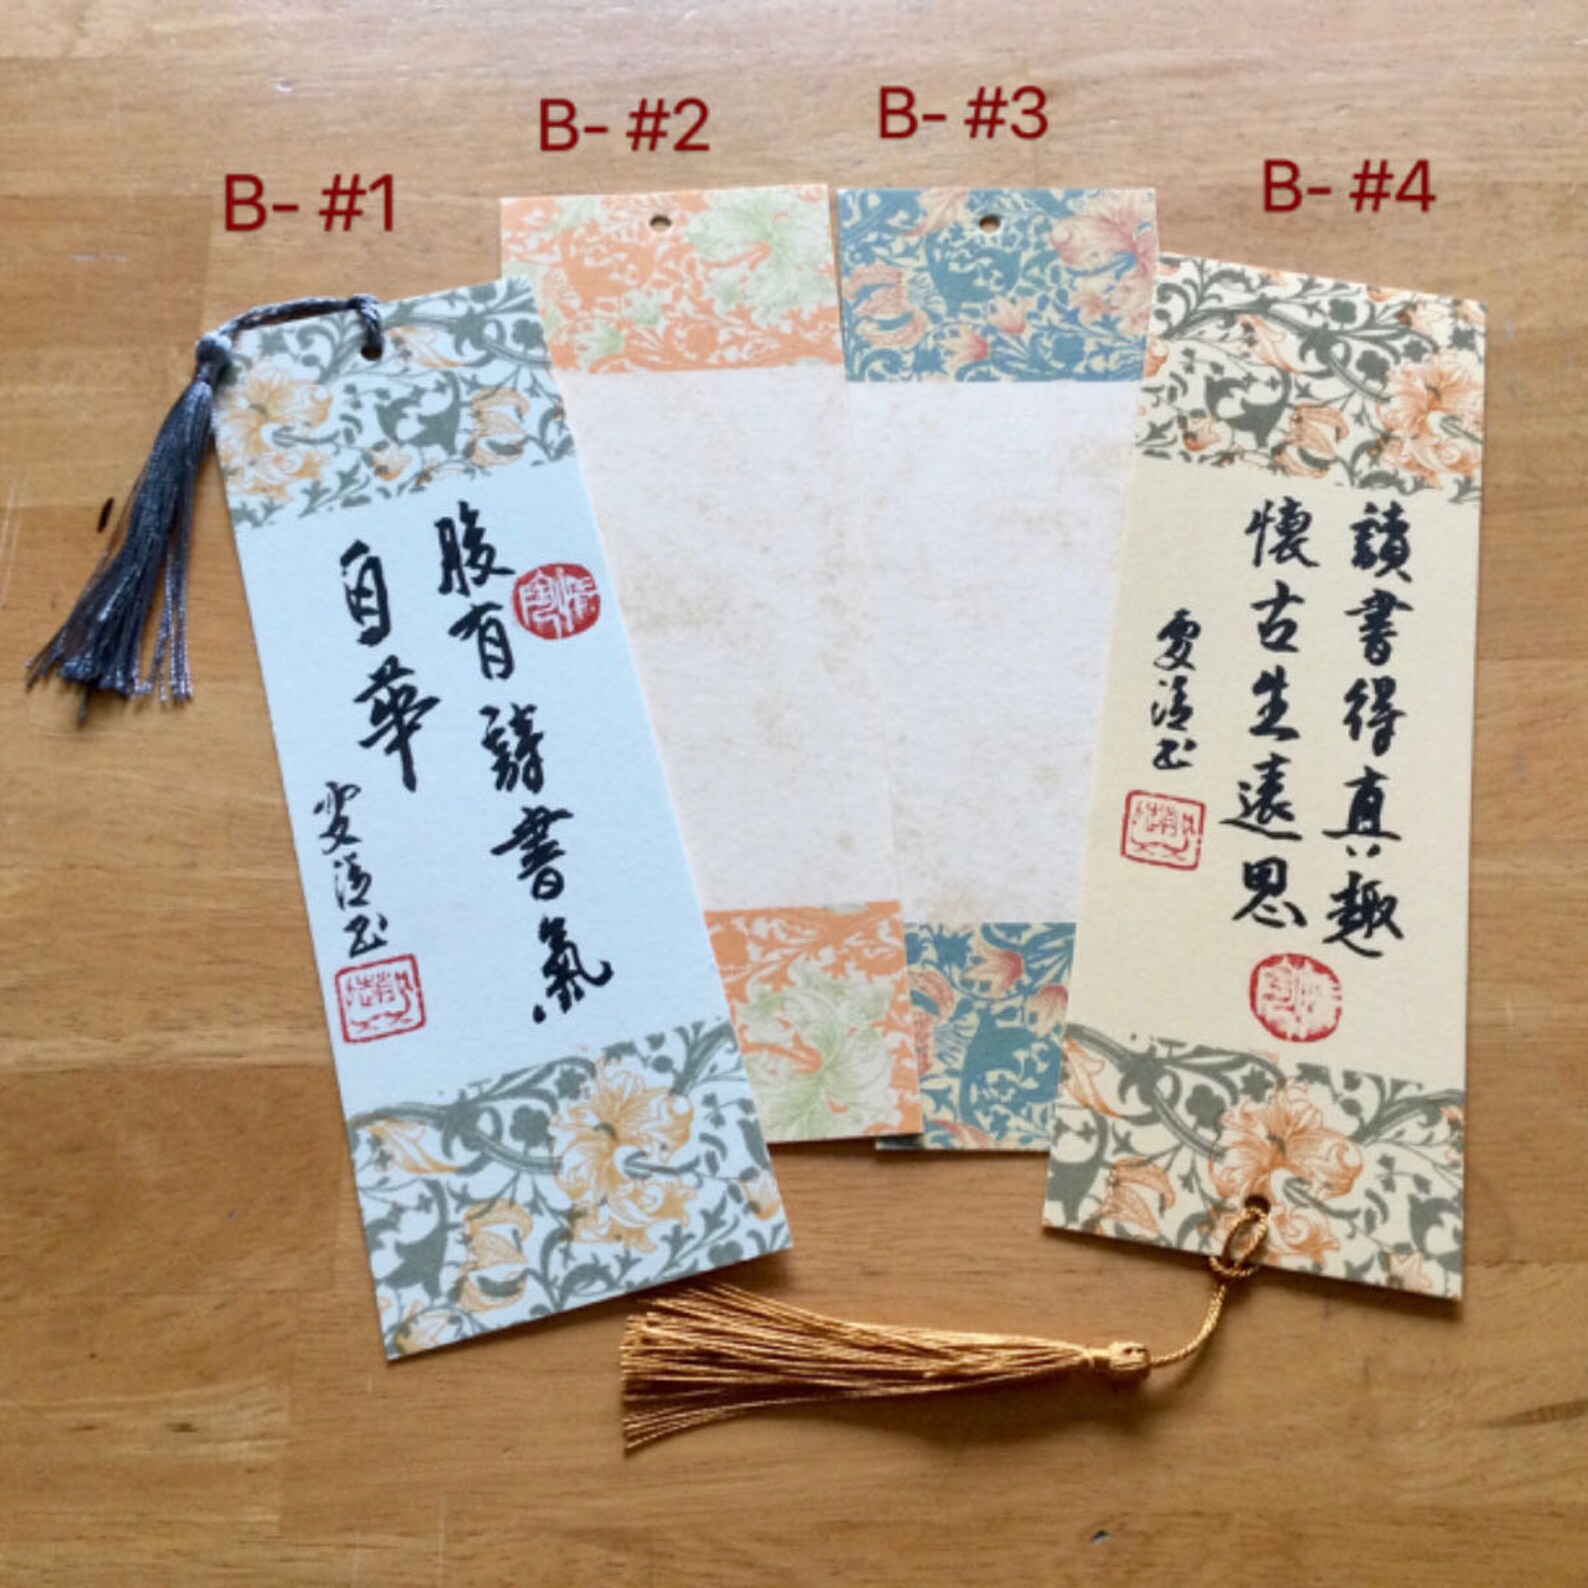 B- #1
B- #2
B- #3
B- #4
腹有詩書氣
自華
讀書得真趣
懷古生遠思